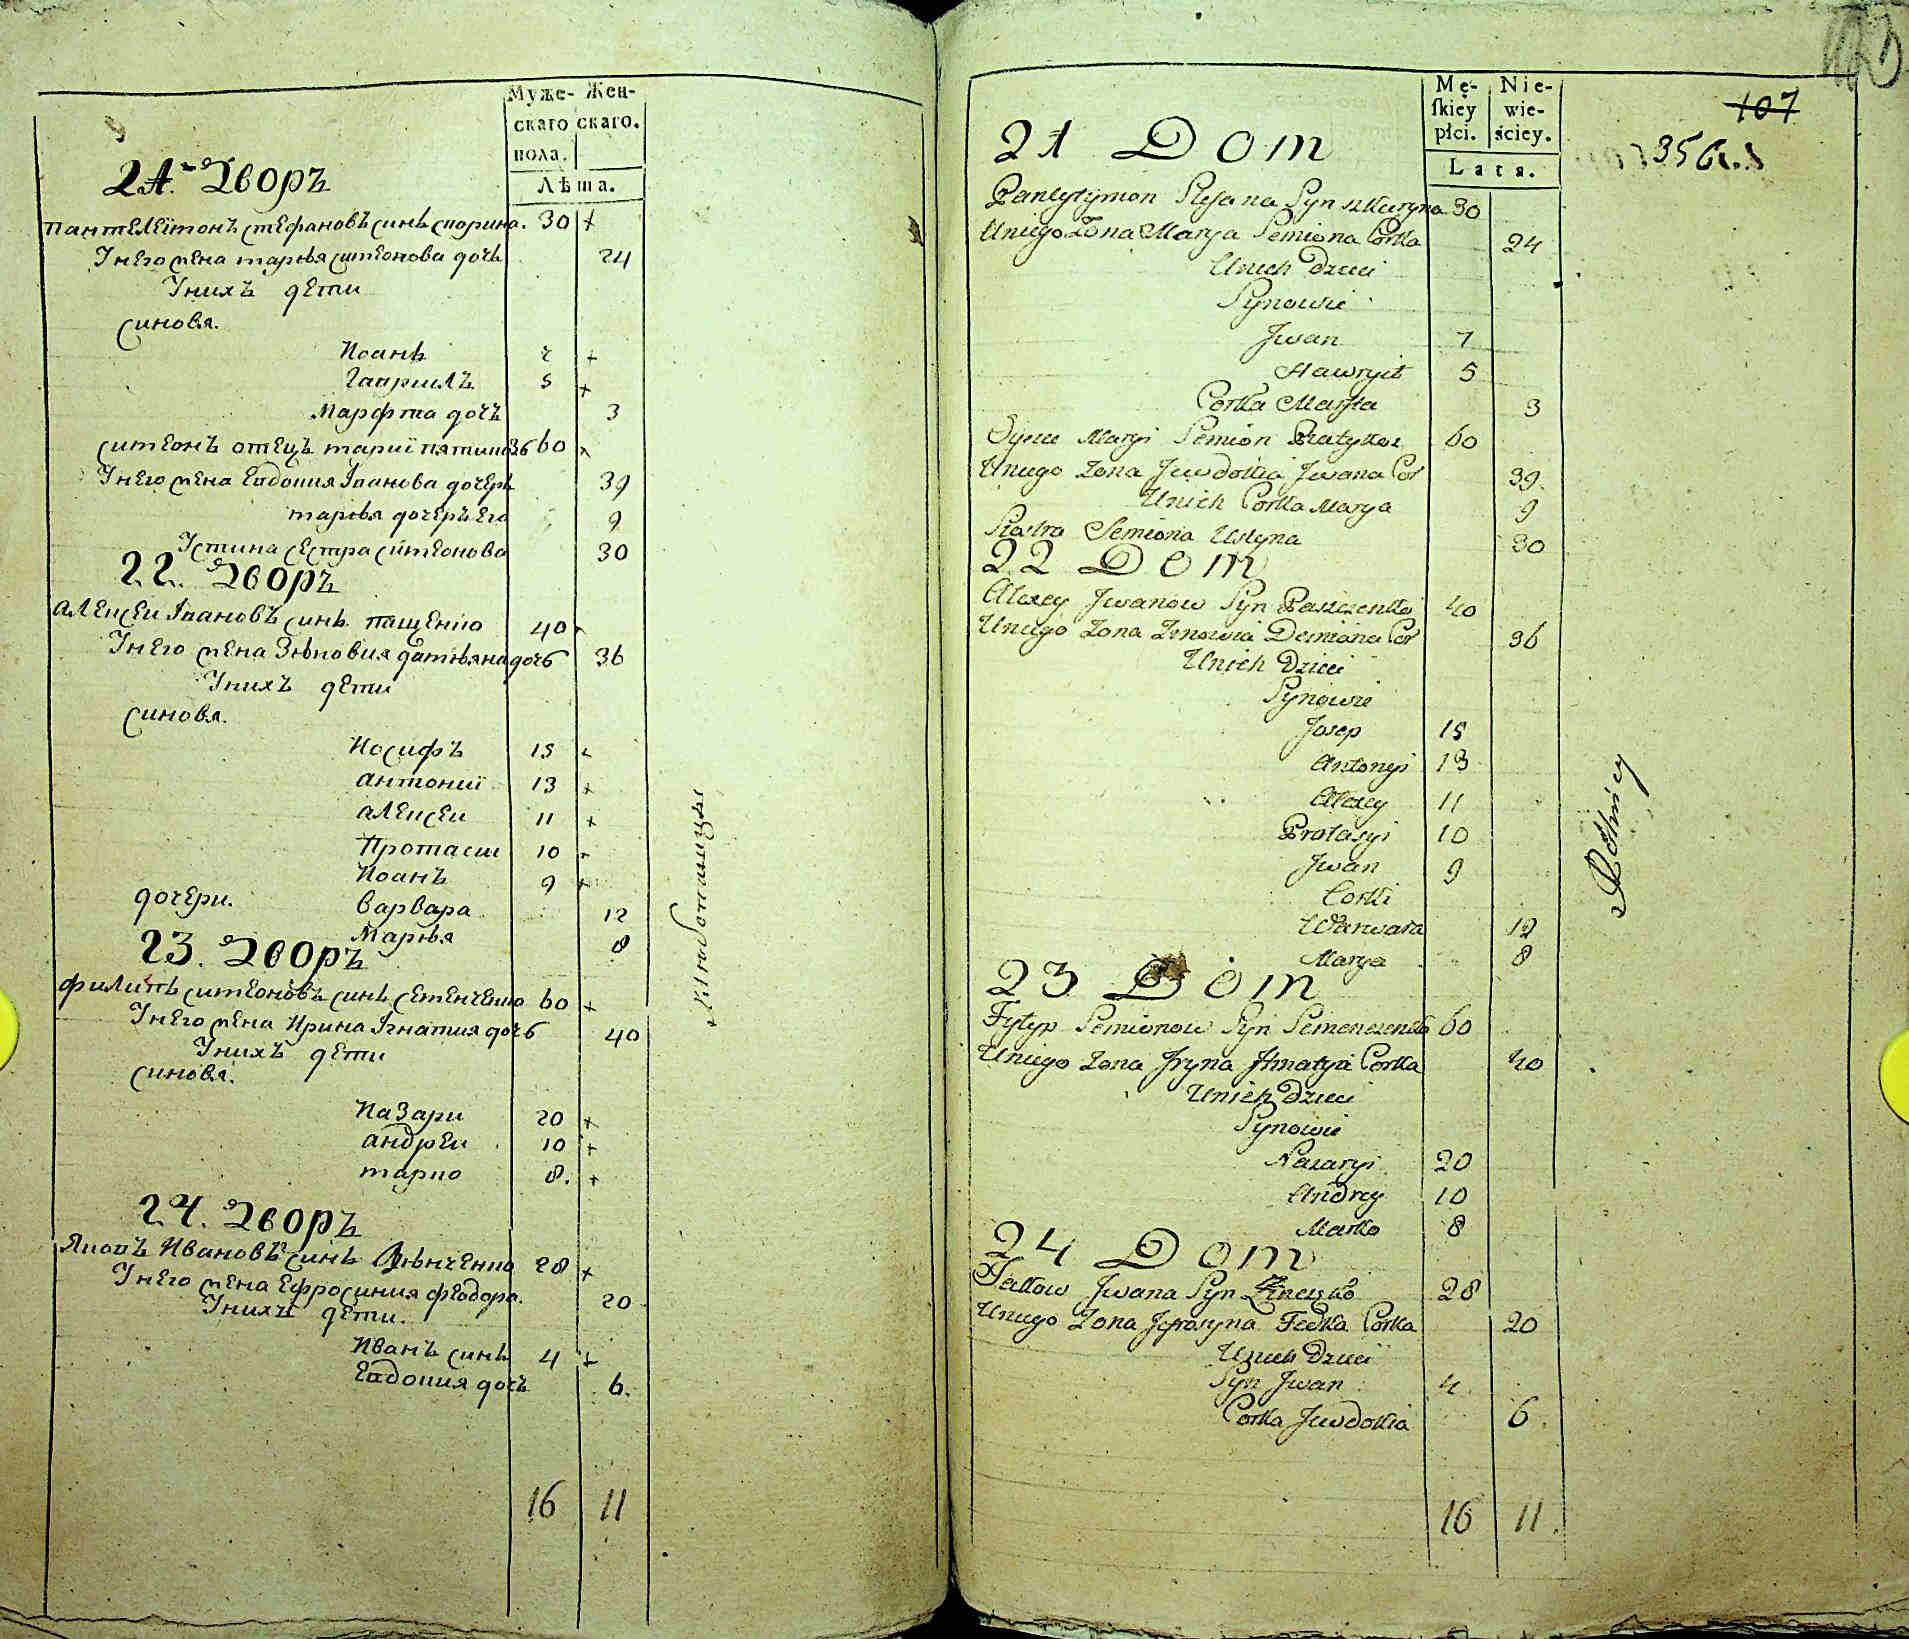 Муже- Жен-
скаго скаго.
пола.
Лѣта.
21. Дворъ
Пантелеімонъ Стефановъ синъ 30
У него жена Марья Симеонова дочь 24
У нихъ дети
синовя.
Иоанъ 7
Гавриилъ 5
Марфта дочъ 3
Симеонъ отецъ Маріи 60
У него жена Евдокия Іванова дочеръ 39
Марья дочеръ его 9
Устина сестра Симеонова 30
22. Дворъ
Алексеи Івановъ синъ Пащенко 40
У него жена Зѣновия Дамъяна дочъ 36
У нихъ дети
синовя.
Иосифъ 15
Антонии 13
Алексеи 11
Протасии 10
Иоанъ 9
дочери. Варвара 12
Марья 8
23. Дворъ
Филипъ Симеоновъ синъ Семенченко 60
У него жена Ирина Ігнатия дочъ 40
У нихъ дети
синовя.
Назари 20
Андреи 10
Марко 8.
24. Дворъ
Яковъ Ивановъ синъ 28
У него жена Ефросиния Феодора. 20
У нихъ дети.
Иванъ синъ 4
Евдокия дочъ 6.
16 11
Mę- Nie-
skiey wie-
płci. ściey.
Lata.
107
356
21 Dom
Pantylymon Stefana Syn Szkuryna 30
U niego Zona Marya Semiona Corka 24
U nich Dzieci
Synowie
Jwan 7
Hawryił 5
Corka Marfta 3
Oyciec Maryi Semion 60
U niego Zona Juwdokia Jwana Cor 39
U nich Corka Marya 9
Siostra Semiona Ustyna 30
22 Dom
Alexey Jwanow Syn Paszczenko 40
U niego Zona Zinowia Demiana Cor 36
U nich Dzieci
Synowie
Josep 15
Antonyi 13
Alexey 11
Protasyi 10
Jwan 9
Corki
Warwara 12
Marya 8
Rolnicy
23 Dom
Fylyp Semionow Syn Semenczenko 60
U niego Zona Jryna Hnatyia Corka 40
U nich Dzieci
Synowie
Nazaryi 20
Andrey 10
Marko 8
24 Dom
Jakow Jwana Syn 28
U niego Zona Jefrosyna Fedka Corka 20
U nich Dzieci
Syn Jwan 4
Corka Juwdokia 6
16 11.